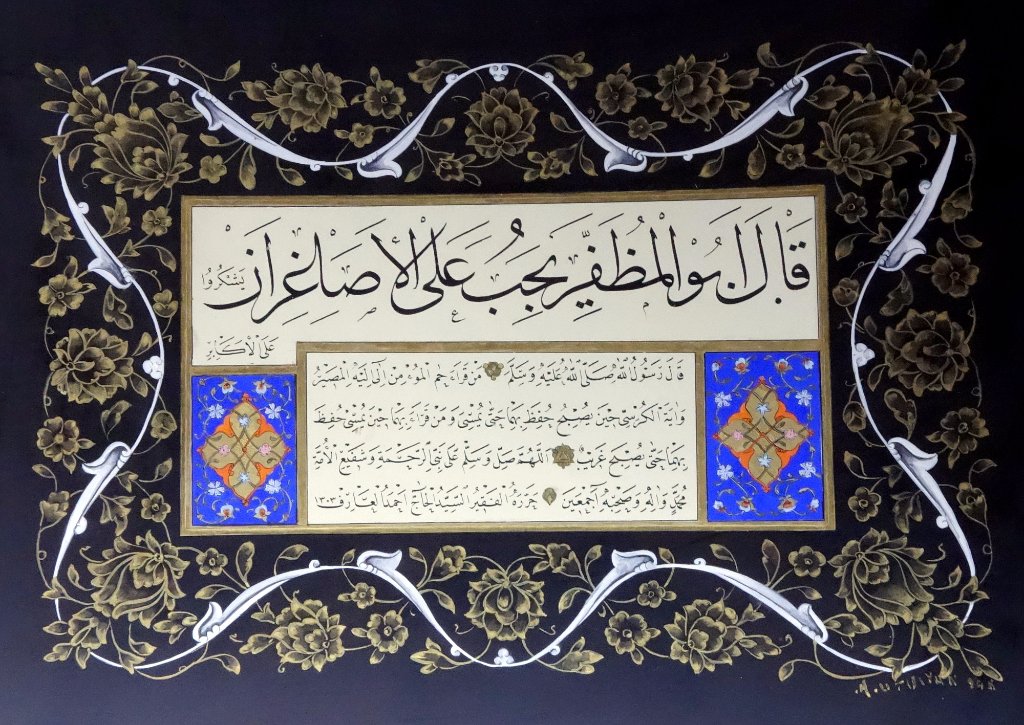 قَالَ اَبُو الْمُظَفِّرِ يَجِبُ عَلَى الْاَصَاغِرِ اَنْ يَشْكُرُوا
عَلَى الْاَكَابِرِ
قَالَ رَسُولُ اللّٰهِ صَلَّى اللّٰهُ عَلَيْهِ وَسَلَّمَ مَنْ قَرَاءَ حٰم الْمُؤْمِنَ اِلٰى اِلَيْهِ الْمَصِيرُ
وَاٰيَةَ الْكُرْسِىِّ حِينَ يُصْبِحُ حُفِظَ بِهِمَا حَتّٰى يُمْسِىَ وَمَنْ قَرَاءَ بِهِمَا حِينَ يُمْسِى حُفِظَ
بِهِمَا حَتّٰى يُصْبِحَ غَرِيبٌ اَللّٰهُمَّ صَلِّ وَسَلِّمْ عَلٰى نَبِىِّ الرَّحْمَةِ وَشَفِيعِ الْاُمَّةِ
مُحَمَّدٍ وَاٰلِهِ وَصَحْبِهِ اَجْمَعِينَ حَرَّرَهُ الْفَقِيرُ السَّيِّدُ الْحَاجّ اَحْمَدُ الْعَارِف ١٣٠٣